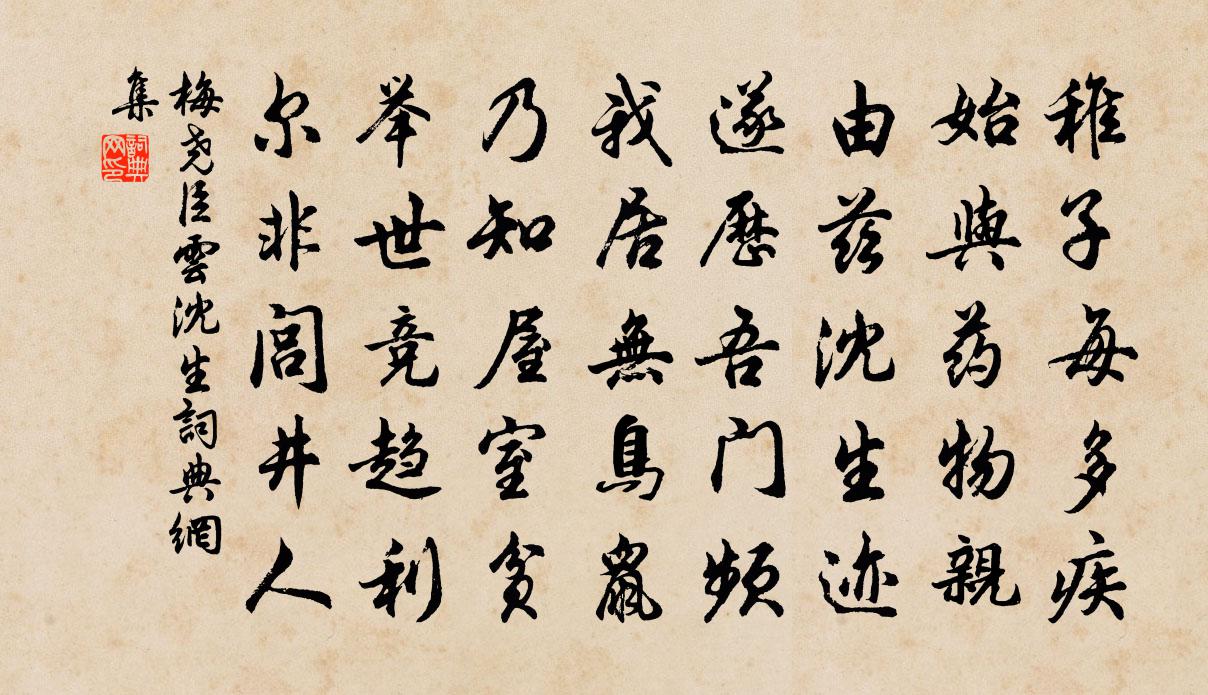 稚子每多疾
始與药物親
由茲沈生迹
遂歷吾门頻
我居無鳥鼠
乃知屋室貧
举世竞趋利
尔非闾井人
梅尧臣雲沈生詞典網
集
詞典
网印